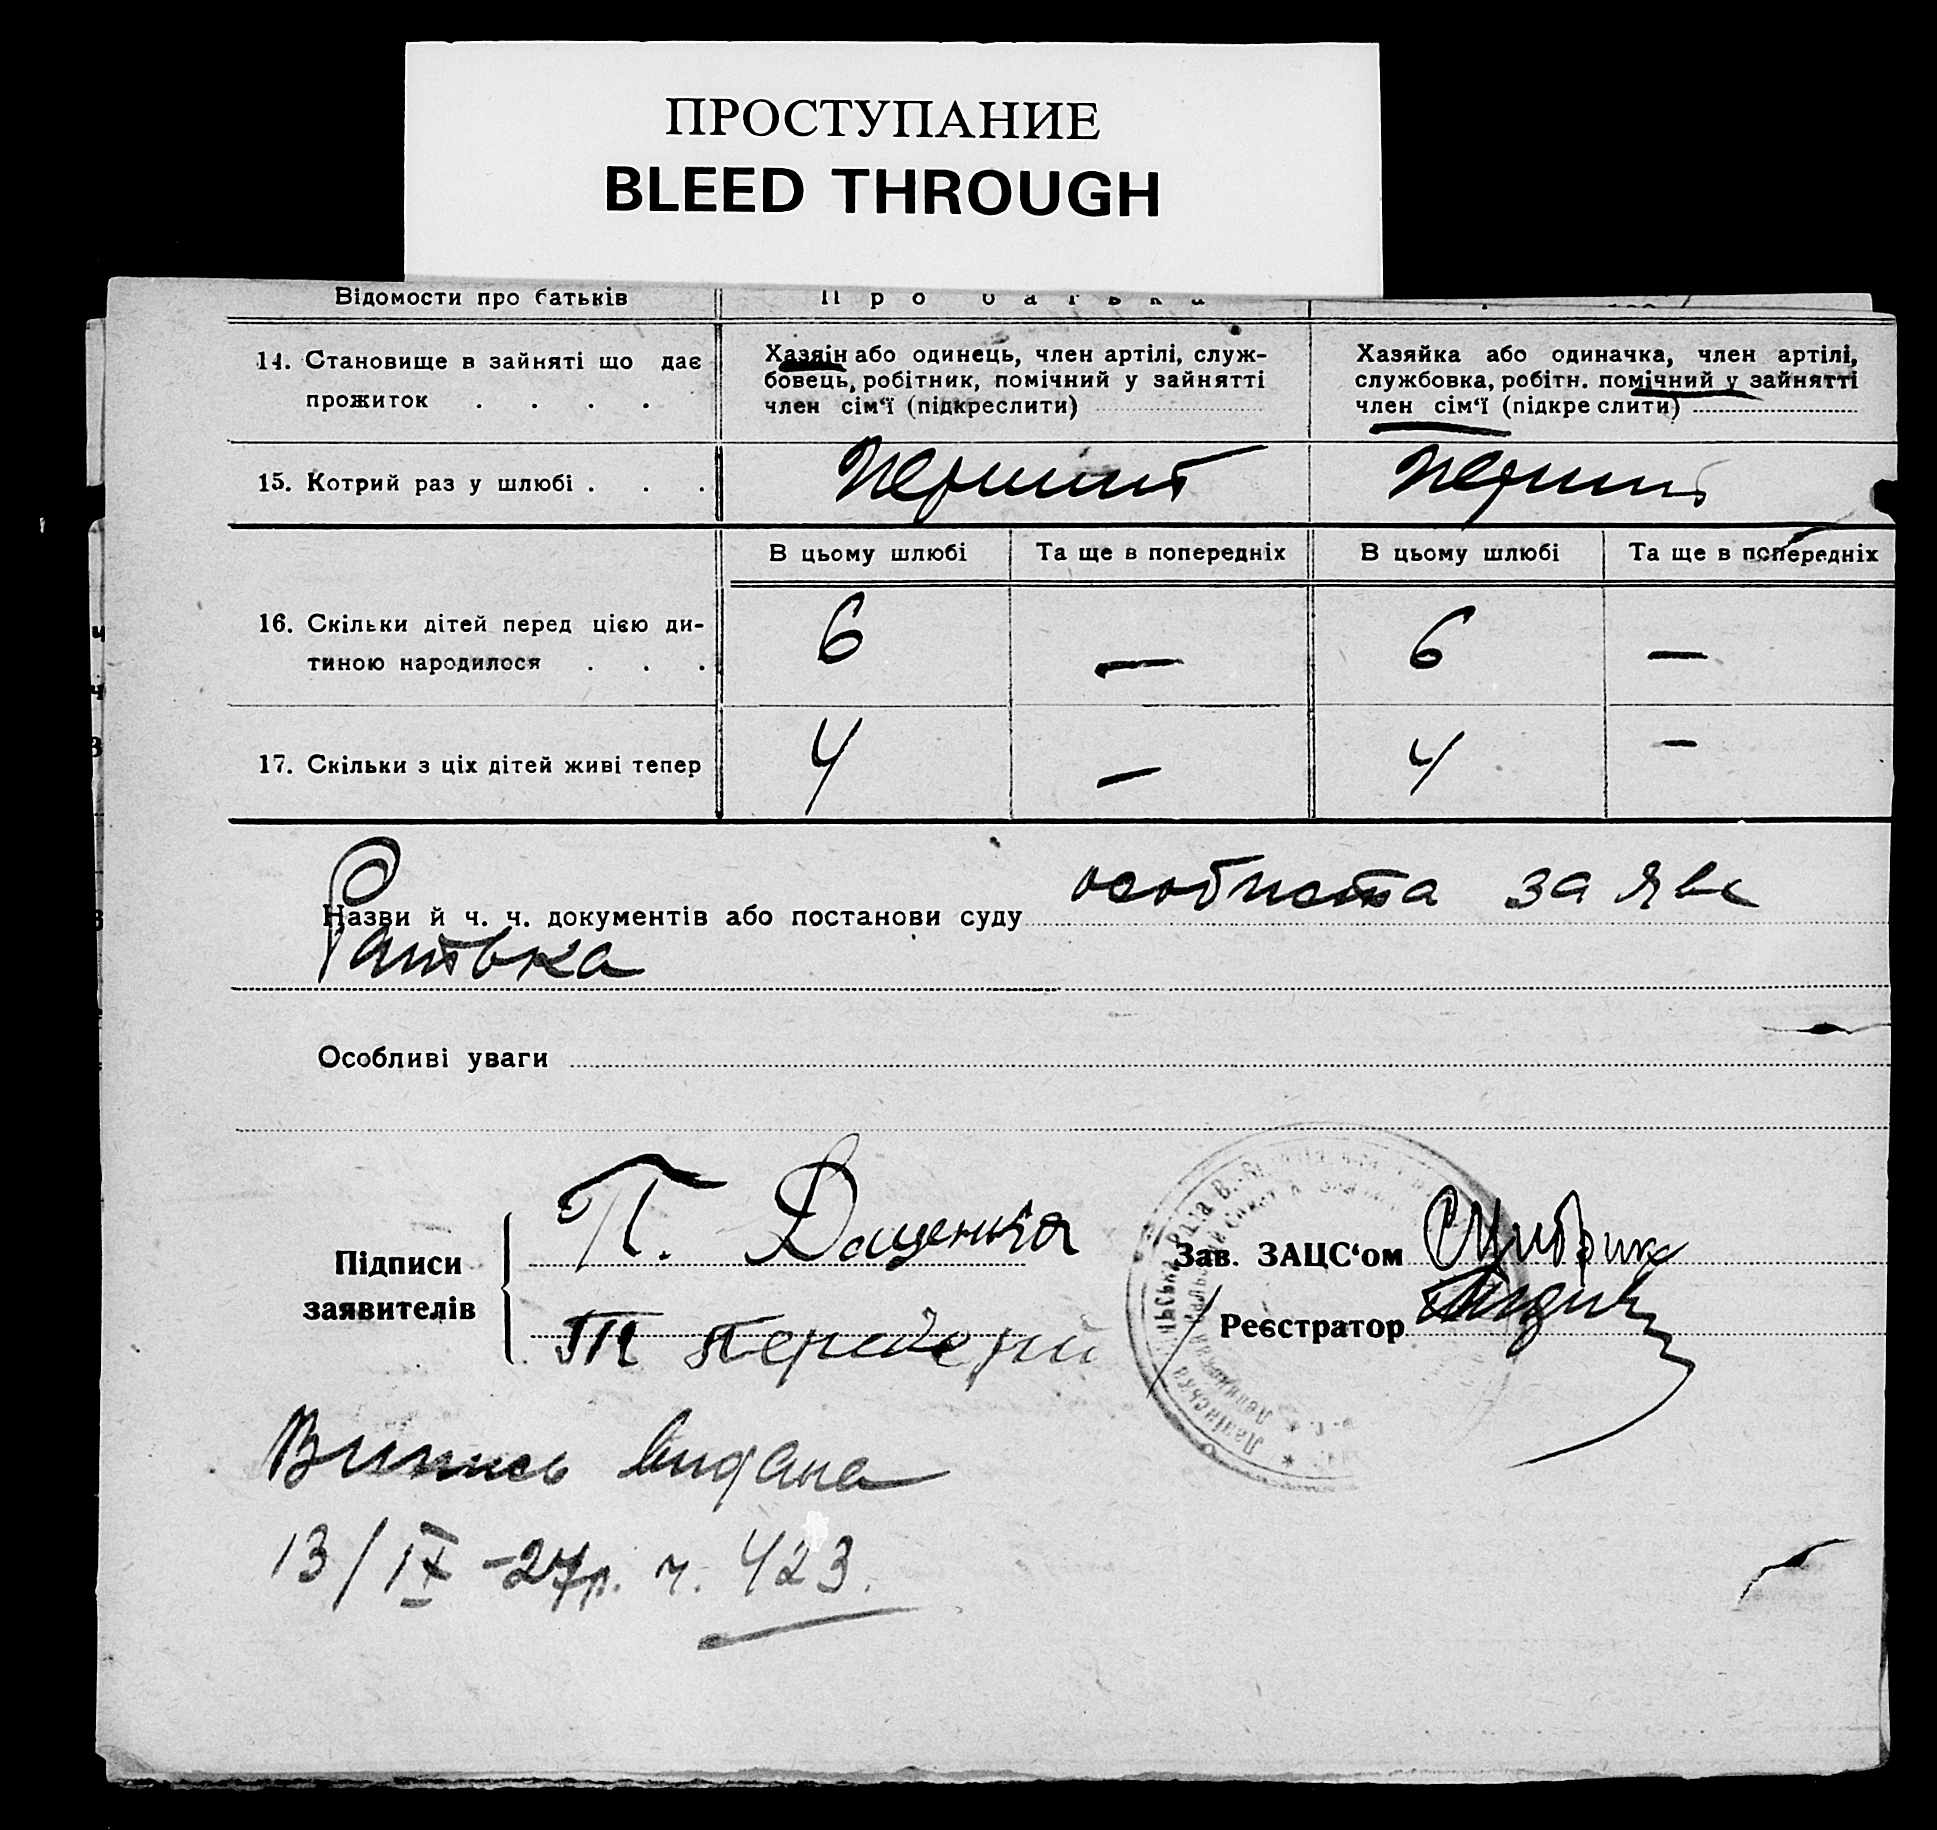 ПРОСТУПАНИЕ
BLEED THROUGH
Відомости про батьків
Про батька
14. Становище в зайняті що дає
прожиток . . . .
Хазяїн або одинець, член артілі, служ-
бовець, робітник, помічний у зайнятті
член сім‘ї (підкреслити)
Хазяйка або одиначка, член артілі,
службовка, робітн. помічний у зайнятті
член сім‘ї (підкреслити)
15. Котрий раз у шлюбі . . .
перший
перший
В цьому шлюбі
Та ще в попередніх
В цьому шлюбі
Та ще в попередніх
16. Скільки дітей перед цією ди-
тиною народилося . . .
6
—
6
—
17. Скільки з ціх дітей живі тепер
4
—
4
—
Назви й ч. ч. документів або постанови суду особиста заява
батька
Особливі уваги
Підписи
заявителів
П. Даценка
Зав. ЗАЦС‘ом
Реєстратор
Випись видана
13/IX -27р. ч. 423.